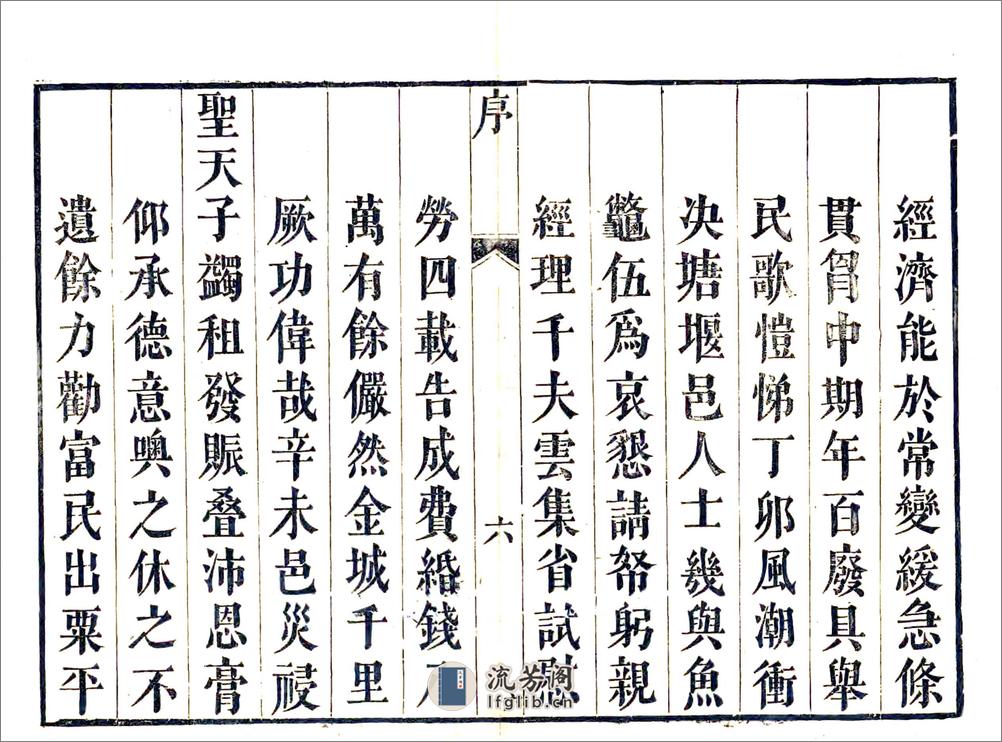 經濟能於常變緩急條
貫胷中期年百廢具舉
民歌愷悌丁卯風潮衝
决塘堰邑人士幾與魚
鼈伍爲哀懇請帑躬親
經理千夫雲集省試慰
序
六
勞四載告成費緡錢
萬有餘儼然金城千里
厥功偉哉辛未邑災祲
聖天子蠲租發賑叠沛恩膏
仰承德意噢之休之不
遺餘力勸富民出粟平
流芳阁
lfglib.cn